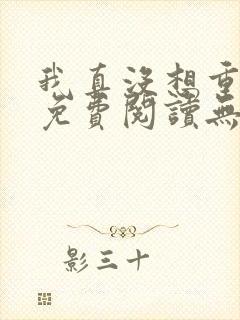 我真没想重
免费閱讀無
影三十